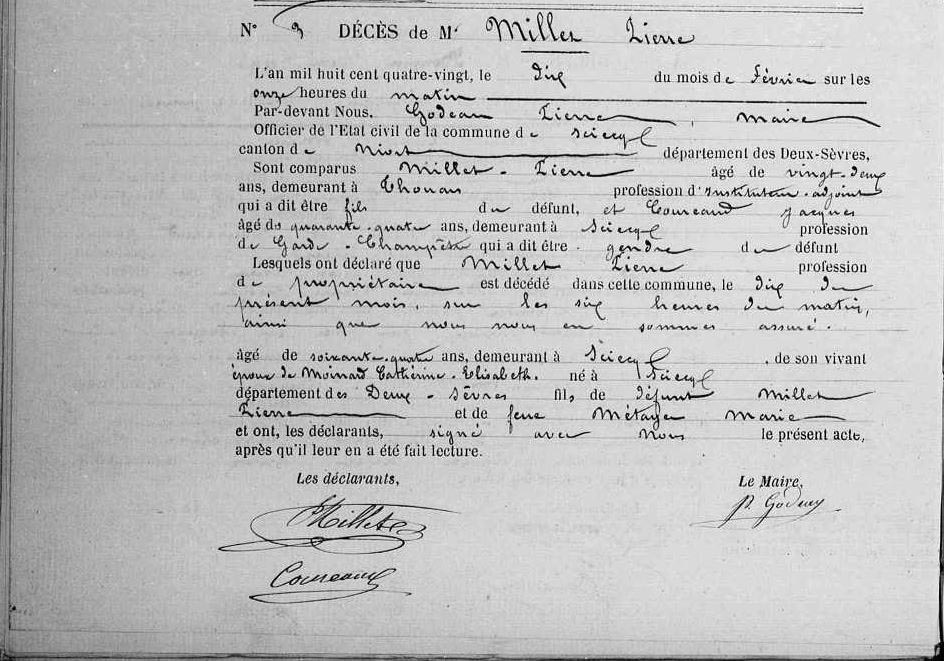 N° 3 DÉCÈS de Mr Millet Pierre
L'an mil huit cent quatre-vingt, le dix du mois de Février sur les
onze heures du matin
Par-devant Nous, Godeau Pierre, Maire
Officier de l'Etat civil de la commune de Sciecq
canton de Niort département des Deux-Sèvres,
Sont comparus Millet Pierre âgé de vingt-deux
ans, demeurant à Thouars profession d'instituteur-adjoint
qui a dit être fils du défunt, et Coureaud Jacques
âgé de quarante-quatre ans, demeurant à Sciecq profession
de Garde-Champêtre qui a dit être gendre du défunt
Lesquels ont déclaré que Millet Pierre profession
de propriétaire est décédé dans cette commune, le dix du
présent mois, sur les six heures du matin,
ainsi que nous nous en sommes assuré.
âgé de soixante-quatre ans, demeurant à Sciecq, de son vivant
époux de Moinard Catherine-Elisabeth. né à Sciecq
département des Deux-Sèvres fils de défunt Millet
Pierre et de feue Métayer Marie
et ont, les déclarants, signé avec nous le présent acte,
après qu'il leur en a été fait lecture.
Les déclarants, Le Maire,
PMillet P. Godeau
Coureaud